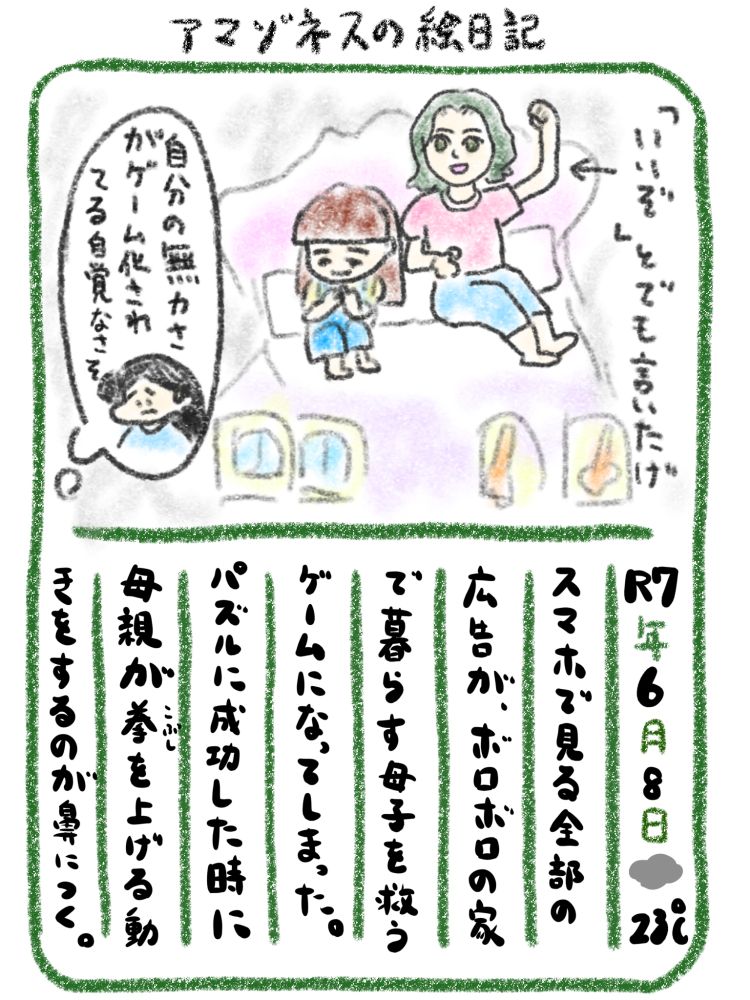 アマゾネスの絵日記
「いいぞ」とでも言いたげ
自分の無力さ
がゲーム化され
てる自覚なさそ
R7年6月8日 23℃
スマホで見る全部の
広告が、ボロボロの家
で暮らす母子を救う
ゲームになってしまった。
パズルに成功した時に
母親が拳を上げる動
こぶし
きをするのが鼻につく。